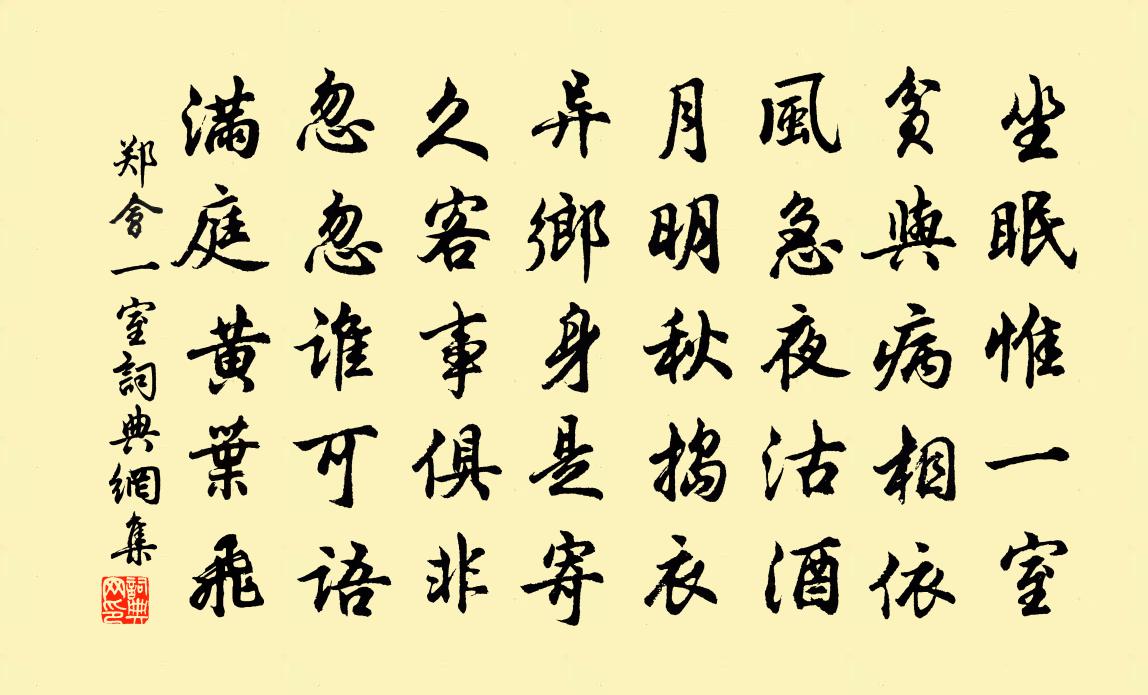 坐眠惟一室
貧與病相依
風急夜沽酒
月明秋搗衣
异鄉身是寄
久客事俱非
忽忽谁可語
满庭黄葉飛
郑會一室詞典網集
詞典网印